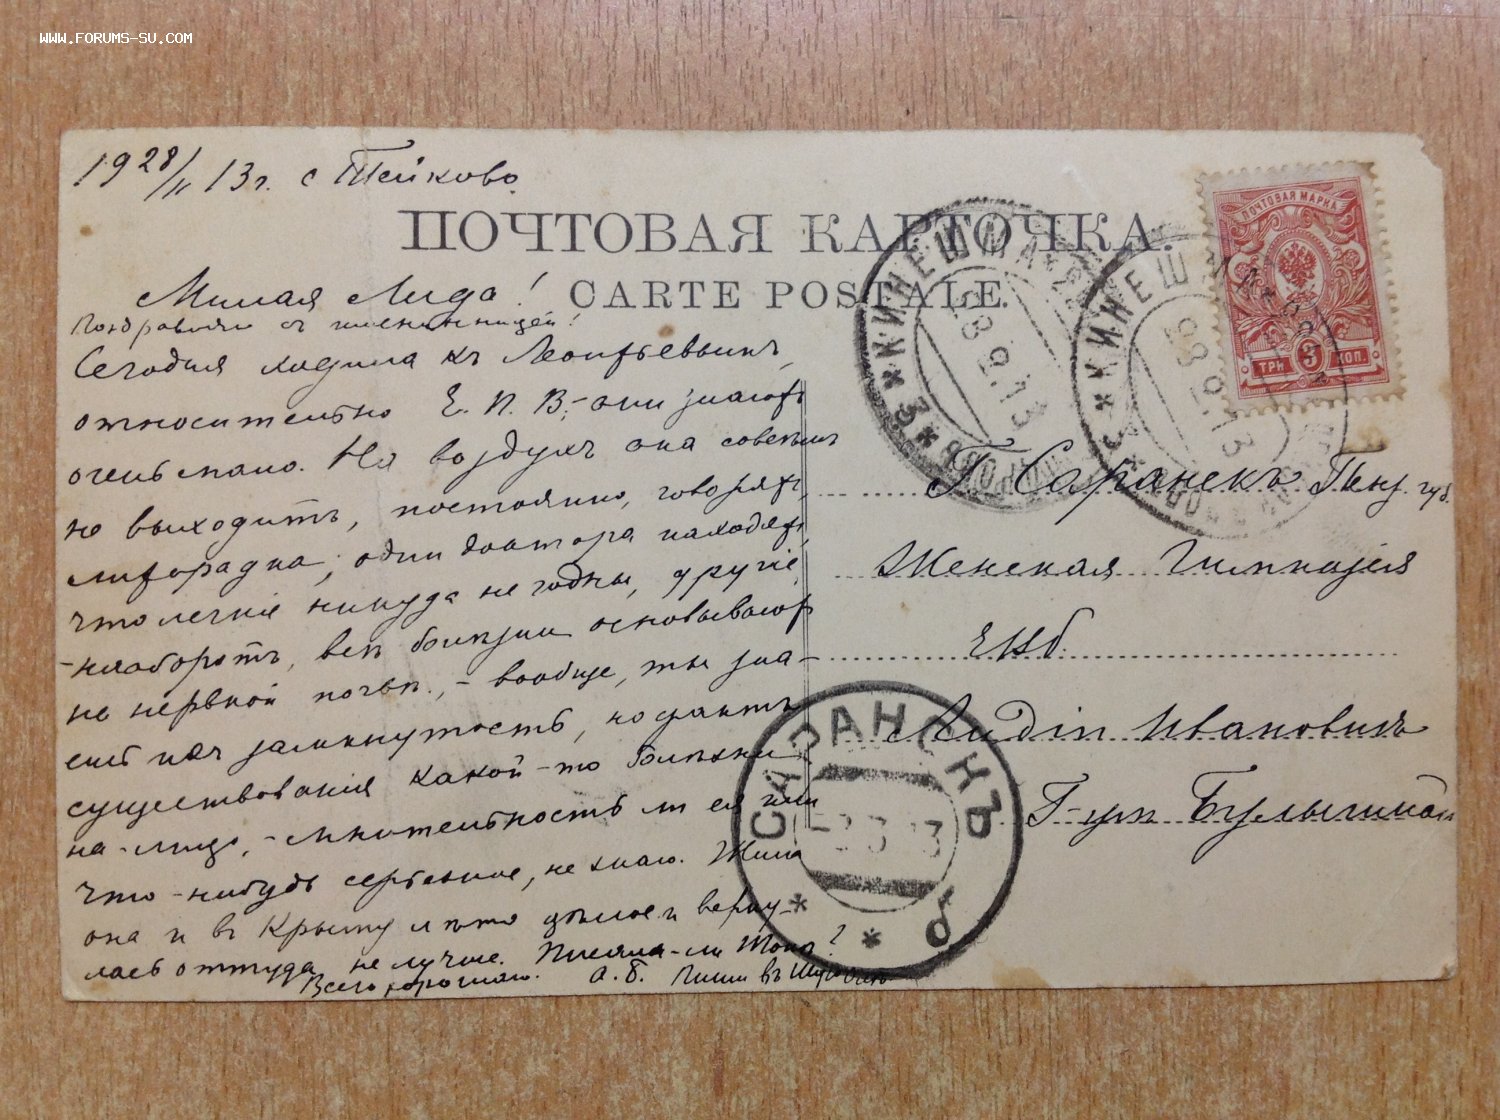 WWW.FORUMS-SU.COM
19 28/II 13 г. с Тейково
ПОЧТОВАЯ КАРТОЧКА.
CARTE POSTALE.
ПОЧТОВАЯ МАРКА
ТРИ 3 КОП.
КИНЕШМА
28 2 13
КИНЕШМА
28 2 13
Милая Лида!
Поздравляю съ именинницей!
Сегодня ходила къ Леонтьевымъ
относительно Е. П. В, - они знаютъ
очень мало. На воздухъ она совсѣмъ
не выходитъ, постоянно, говорятъ,
лихорадка; одни доктора находятъ,
что легкіе никуда не годны, другіе,
- наоборотъ, всѣ болѣзни основываютъ
на нервной почвѣ, - вообще, ты зна-
ешь ихъ замкнутость, но фактъ
существованія какой-то болѣзни
на-лицо, - мнительность ли ея или
что-нибудь серьезное, не знаю. Жила
она и въ Крыму лѣто цѣлое и верну-
лась оттуда не лучше. Писала-ли Тоня?
Всего хорошаго. А. Б. Пиши въ
Г. Саранскъ Пенз. губ.
Женская Гимназія
ЕНб.
Лидіи Ивановнѣ
Г-жѣ
САРАНСКЪ
б